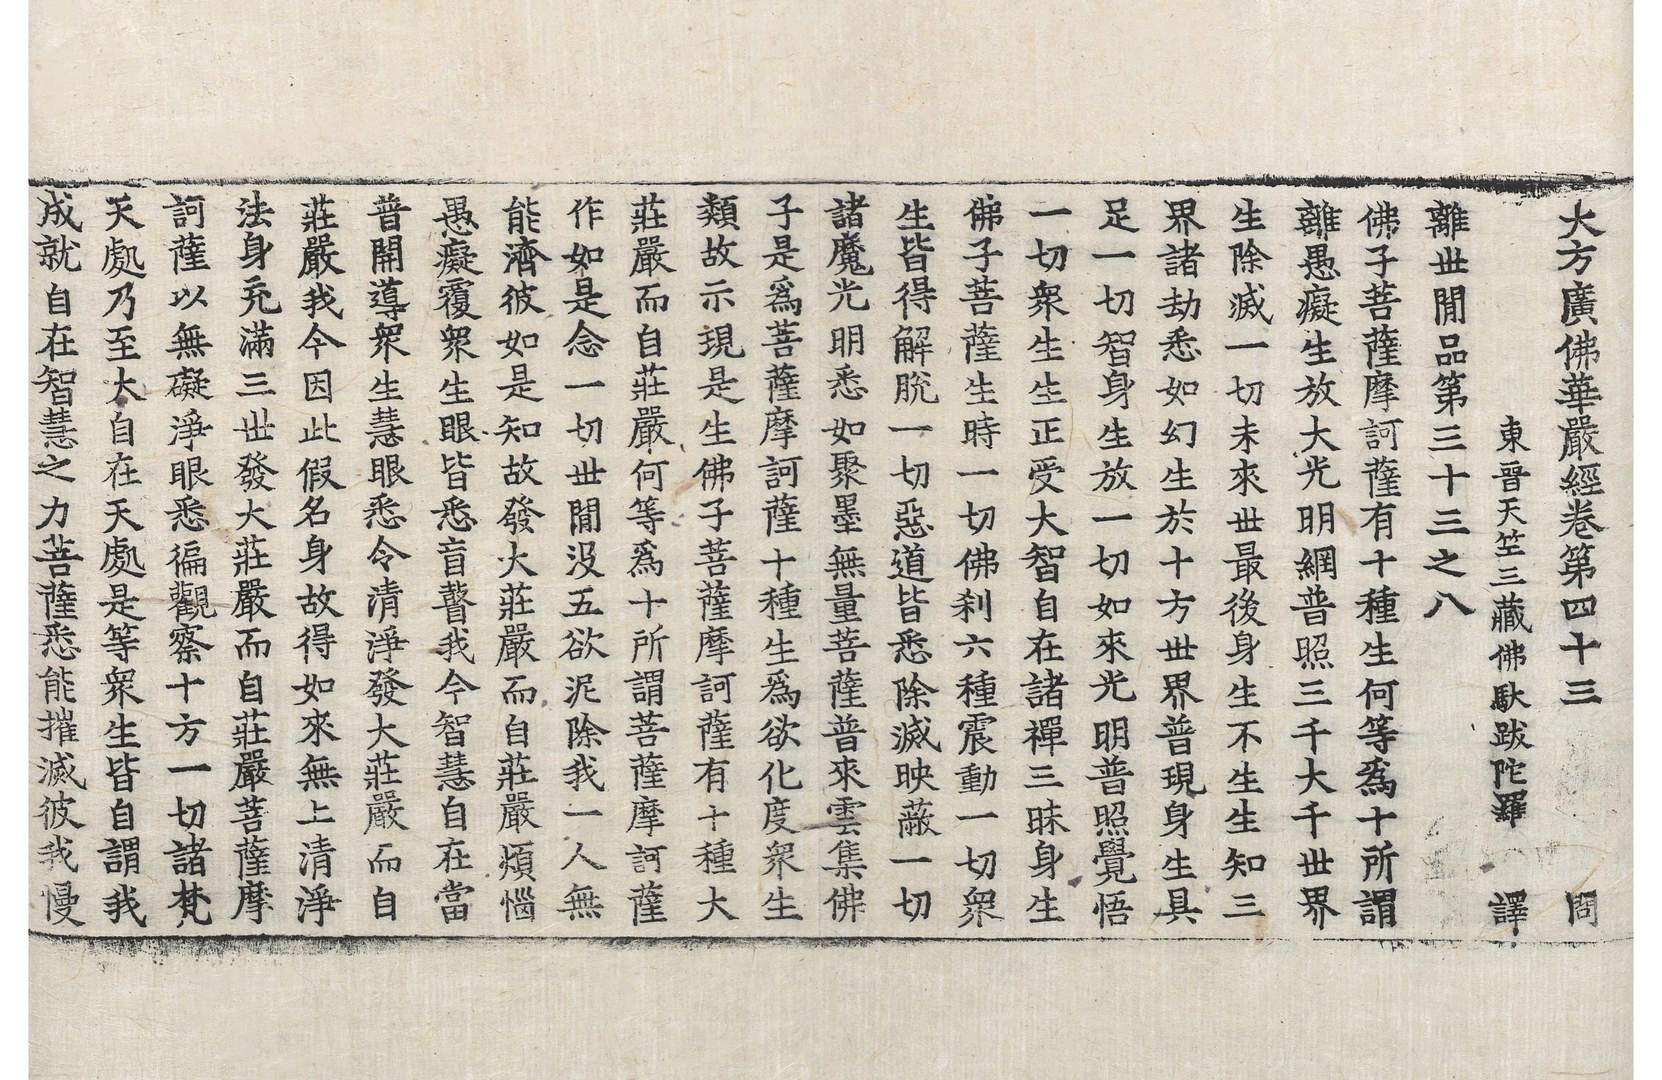 大方廣佛華嚴經卷第四十三 問
東晉天竺三藏佛馱跋陀羅 譯
離世閒品第三十三之八
佛子菩薩摩訶薩有十種生何等爲十所謂
離愚癡生放大光明網普照三千大千世界
生除滅一切未來世最後身生不生生知三
界諸劫悉如幻生於十方世界普現身生具
足一切智身生放一切如來光明普照覺悟
一切衆生生正受大智自在諸禪三昧身生
佛子菩薩生時一切佛刹六種震動一切衆
生皆得解脫一切惡道皆悉除滅映蔽一切
諸魔光明悉如聚墨無量菩薩普來雲集佛
子是爲菩薩摩訶薩十種生爲欲化度衆生
類故示現是生佛子菩薩摩訶薩有十種大
莊嚴而自莊嚴何等爲十所謂菩薩摩訶薩
作如是念一切世閒没五欲泥除我一人無
能濟彼如是知故發大莊嚴而自莊嚴煩惱
愚癡覆衆生眼皆悉盲瞽我今智慧自在當
普開導衆生慧眼悉令清淨發大莊嚴而自
莊嚴我今因此假名身故得如來無上清淨
法身充滿三世發大莊嚴而自莊嚴菩薩摩
訶薩以無礙淨眼悉徧觀察十方一切諸梵
天處乃至大自在天處是等衆生皆自謂我
成就自在智慧之力菩薩悉能摧滅彼我慢